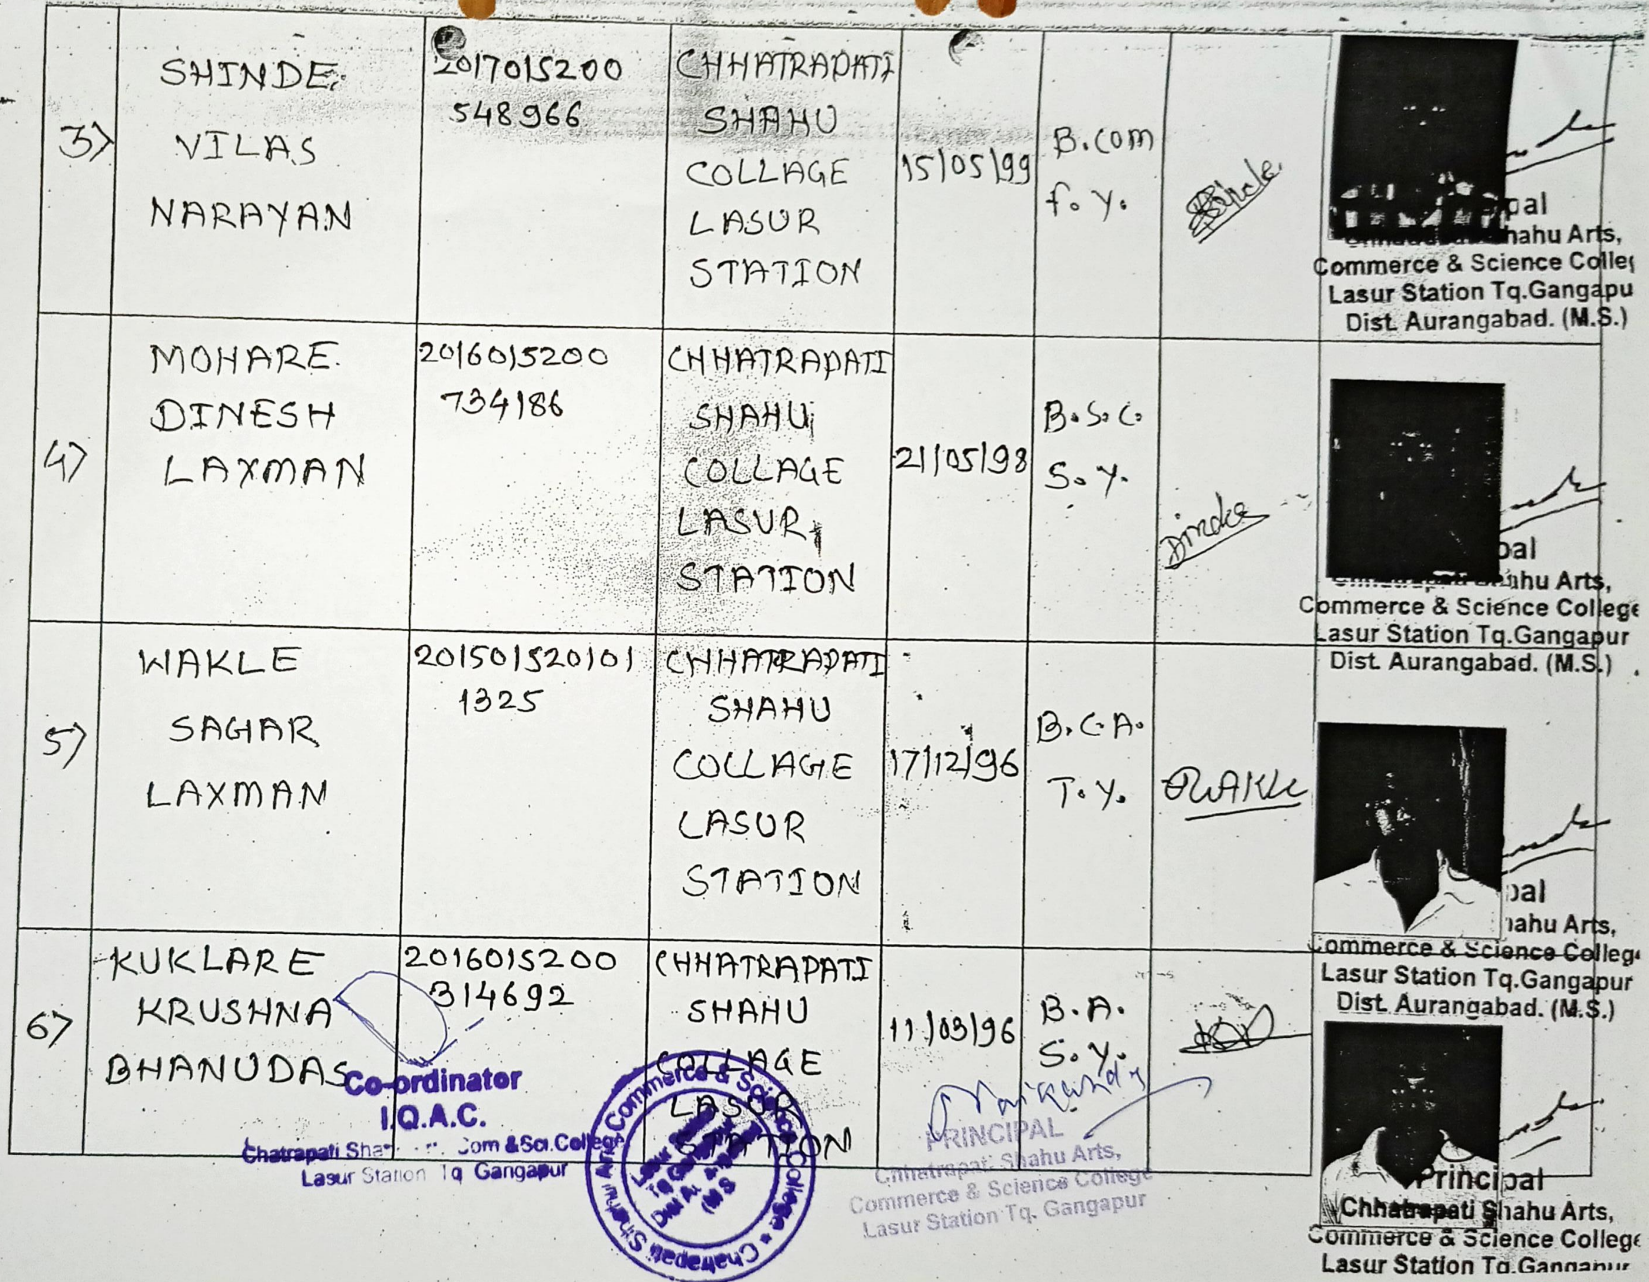 3)
SHINDE
VILAS
NARAYAN
2017015200
548966
CHHATRAPATI
SHAHU
COLLAGE
LASUR
STATION
15/05/99
B.COM
F.Y.
pal
Shahu Arts,
Commerce & Science Colleg
Lasur Station Tq.Gangapu
Dist. Aurangabad. (M.S.)
4)
MOHARE
DINESH
LAXMAN
2016015200
734186
CHHATRAPATI
SHAHU
COLLAGE
LASUR
STATION
21/05/98
B.S.C.
S.Y.
pal
Shahu Arts,
Commerce & Science College
Lasur Station Tq.Gangapur
Dist. Aurangabad. (M.S.)
5)
WAKLE
SAGAR
LAXMAN
201501520101
1325
CHHATRAPATI
SHAHU
COLLAGE
LASUR
STATION
17/12/96
B.C.A.
T.Y.
WAKLE
pal
hahu Arts,
Commerce & Science College
Lasur Station Tq.Gangapur
Dist. Aurangabad. (M.S.)
6)
KUKLARE
KRUSHNA
BHANUDAS
2016015200
314692
CHHATRAPATI
SHAHU
COLLAGE
LASUR
STATION
11/03/96
B.A.
S.Y.
Principal
Chhatrapati Shahu Arts,
Commerce & Science College
Lasur Station Tq.Gangapur
Co-ordinator
I.Q.A.C.
Chatrapati Com & Sci. College
Lasur Station Tq Gangapur
Chatrapati Shahu Arts Commerce & Science College
PRINCIPAL
Chhatrapati Shahu Arts,
Commerce & Science College
Lasur Station Tq. Gangapur